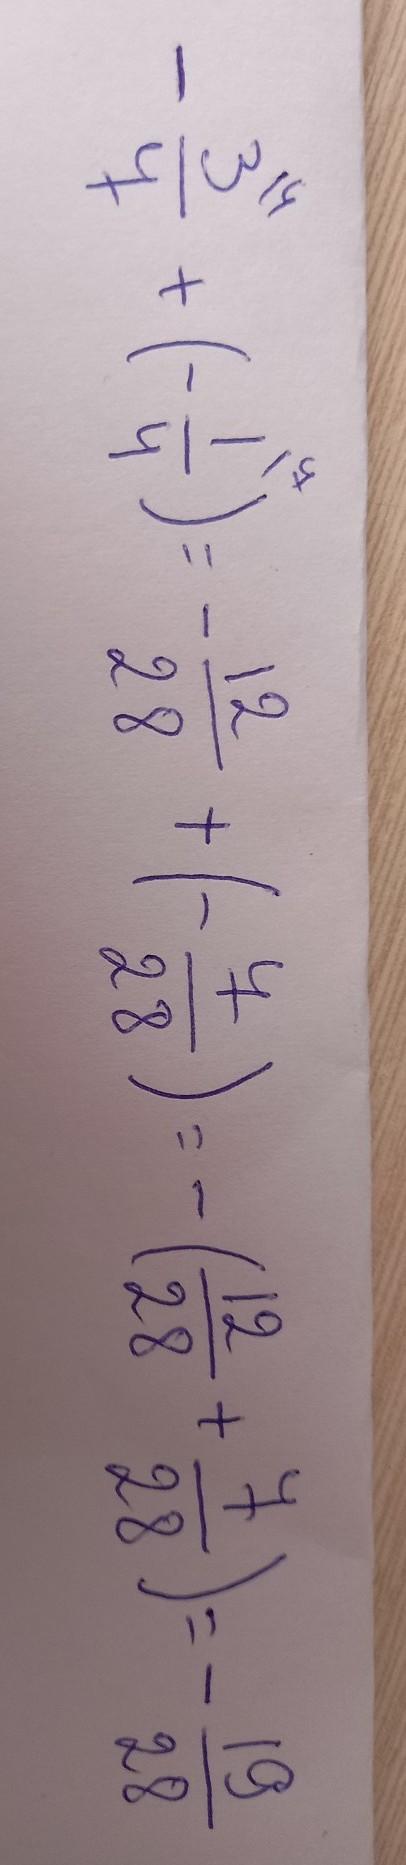 -3/7\4 + (-1/4\7) = -12/28 + (-7/28) = -(12/28 + 7/28) = -19/28